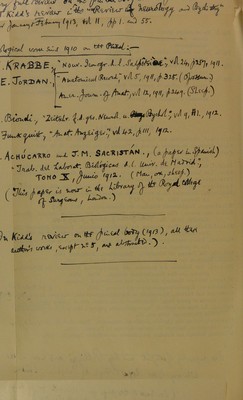 review on the pineal
Kidd's review in the "Review of Neurology and Psychiatry"
January & February 1913, vol. 11, pp. 1 and 55.
work since 1910 on the Pineal:-
KRABBE, "Nouv. Iconogr. d. l. Salpêtrière", vol 24, p 257, 1911.
E. JORDAN, "Anatomical Record", vol 5, 1911, p 325. (Opossum)
Amer. Journ. of Anat., vol 12, 1911, p 249. (Sheep)
Biondi, Psychol.", vol 9, H 1, 1912.
Funkquist, "Anat. Anzeiger", vol 42, p 111, 1912.
ACHÚCARRO and J. M. SACRISTÁN, (a paper in Spanish)
"Trab. del Laborat. Biológicas d. l. Univ. de Madrid",
TOMO X, Junio 1912. (Man, ox, sheep)
("This paper is now in the Library of the Royal College
of Surgeons, London.)
In Kidd's review on the pineal body (1913), all these
author's works, except no 5, are abstracted.)